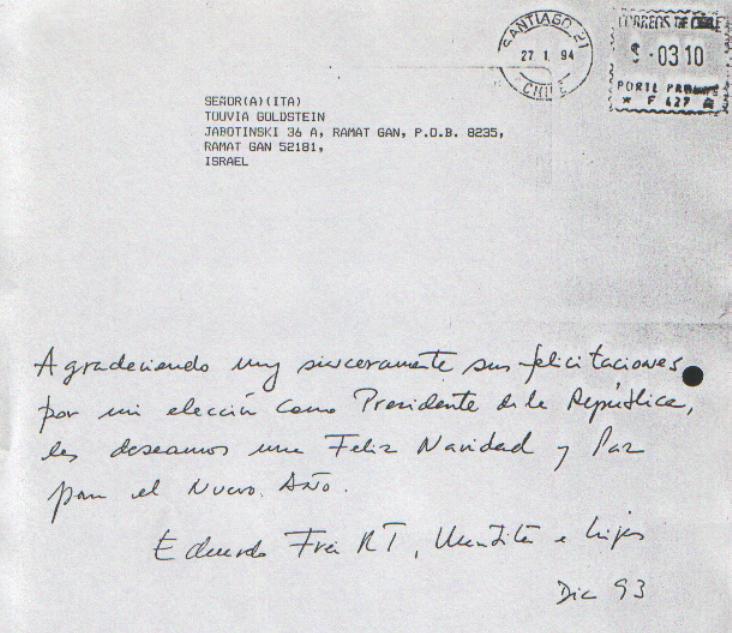 SANTIAGO 21
27 1. 94
CHILE
CORREOS DE CHILE
$ -03 10
PORTE PAGADO
* F 427
SEÑOR(A)(ITA)
TOUVIA GOLDSTEIN
JABOTINSKI 36 A, RAMAT GAN, P.O.B. 8235,
RAMAT GAN 52181,
ISRAEL
Agradeciendo muy sinceramente sus felicitaciones
por mi elección como Presidente de la República,
les deseamos una Feliz Navidad y Paz
para el Nuevo Año.
Eduardo Frei RT, e hijos
Dic 93